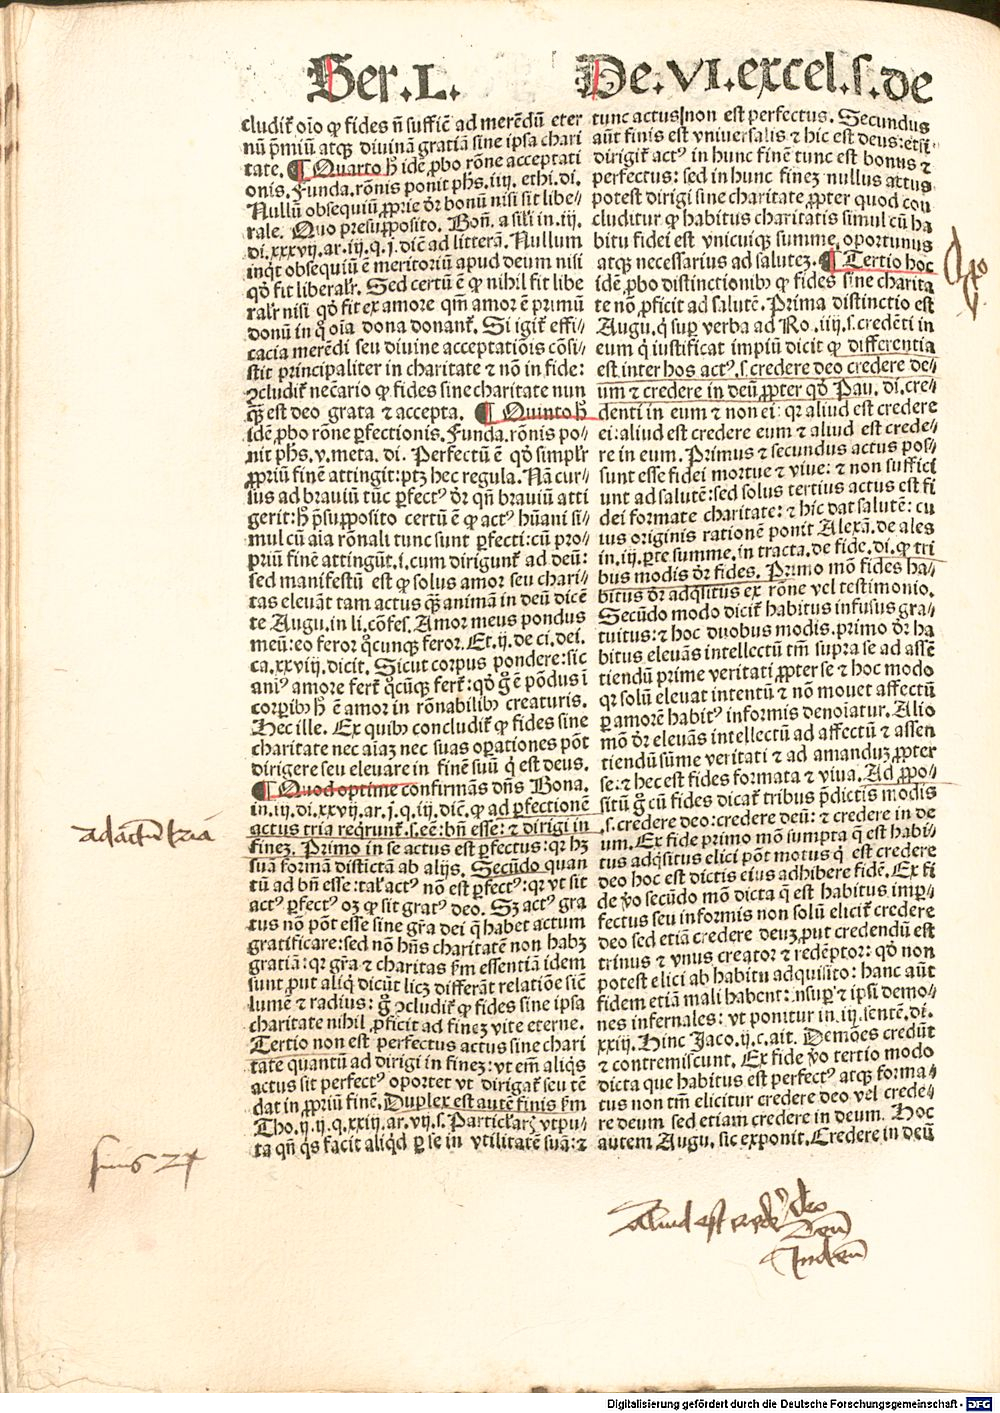 Ser.L.
De.VI.excel.s.de
cludit͛ oīo ꝙ fides nͦ suffic̄ ad merēdū eter
nū p̄miū atqꝫ diuinā gratiā sine ipsa chari
tate. ¶ Quarto ħ idē ꝓbo rōne acceptati
onis. Funda.rōnis ponit phs.iiij. ethi.di.
Nullū obsequiū ꝓprie dr̄ bonū nisi sit libe-
rale. Quo presuꝓposito. Bon̄. a sili in.iij.
di.xxxvij.ar.iij.q.j.dicē ad litterā. Nullum
inqͭ obsequiū ē meritoriū apud deum nisi
qd̓ fit liberalr̄. Sed certū ē ꝙ nihil fit libe
ralr̄ nisi qd̓ fit ex amore qm̄ amor ē primū
donū in qͦ oīa dona donant͛. Si igit͛ effi⸗
cacia merēdi seu diuine acceptatiōis cōsi⸗
stit principaliter in charitate ⁊ nō in fide:
ꝯcludit͛ nec̄ario ꝙ fides sine charitate nun
qꝫ est deo grata ⁊ accepta. ¶ Quinto ħ
idē ꝓbo rōne ꝑfectionis. Funda.rōnis po-
nit phs.v.meta.di. Perfectū ē qd̓ simplr̄
ꝓpriū finē attingit: ptꝫ hec regula. Nā cur⸗
sus ad brauiū tūc ꝑfectꝰ dr̄ qn̄ brauiū atti
gerit: ħ p̄suꝓposito certū ē ꝙ actꝰ hūani si-
mul cū aīa rōnali tunc sunt ꝑfecti: cū pro-
priū finē attingūt.i.cum dirigunt͛ ad deū:
sed manifestū est ꝙ solus amor seu chari-
tas eleuāt tam actus qꝫ animā in deū dicē
te Augu.in li.cōfes. Amor meus pondus
meū: eo feror qͦcunqꝫ feror. Et.ij.de ci.dei.
ca.xxviij.dicit. Sicut corpus pondere: sic
aniꝰ amore fert͛ qͦcūqꝫ fert͛: qd̓ gͦ ē pōdus ī
corꝑibꝰ ħ ē amor in rōnabilibꝰ creaturis.
Hec ille. Ex quibꝰ concludit͛ ꝙ fides sine
charitate nec aīaꝫ nec suas oꝑationes pōt
dirigere seu eleuare in finē suū qͥ est deus.
¶ Quod optime confirmās dn̄s Bona.
in.iij.di.xxvij.ar.j.q.iij.dic̄. ꝙ ad ꝑfectionē
actus tria reqͥrunt͛.s.eē: bn̄ esse: ⁊ dirigi in
fineꝫ. Primo in se actus est ꝑfectus: qꝛ hꝫ
suā formā distictā ab alijs. Secūdo quan
tū ad bn̄ esse: tal̓ actꝰ nō est ꝑfectꝰ: qꝛ vt sit
actꝰ ꝑfectꝰ oꝫ ꝙ sit gratꝰ deo. Sꝫ actꝰ gra
tus nō pōt esse sine gr̄a dei q̄ habet actum
gratificare: sed nō hn̄s charitatē non habꝫ
gratiā: qꝛ gr̄a ⁊ charitas ẜm essentiā idem
sunt ꝓut aliqͥ dicūt licꝫ differāt relatiōe sic̄
lumē ⁊ radius: gͦ ꝯcludit͛ ꝙ fides sine ipsa
charitate nihil ꝓficit ad fineꝫ vite eterne.
Tertio non est perfectus actus sine chari
tate quantū ad dirigi in fineꝫ: vt em̄ aliqͥs
actus sit perfectꝰ oportet vt dirigat͛ seu tē
dat in ꝓpriū finē. Duplex est autē finis ẜm
Tho.ij.ij.q.xxiij.ar.vij.s. Particlarꝫ vtpu-
ta qn̄ qͥs facit aliqͥd ꝑ se in vtilitatē suā: ⁊
tunc actus non est perfectus. Secundus
aūt finis est vniuersalis ⁊ hic est deus: etsi⸗
dirigit͛ actꝰ in hunc finē tunc est bonus ⁊
perfectus: sed in hunc fineꝫ nullus actus
potest dirigi sine charitate ꝓpter quod con
cluditur ꝙ habitus charitatis simul cū ha
bitu fidei est vnicuiqꝫ summe oportunus
atqꝫ necessarius ad saluteꝫ. ¶ Tertio hoc
idē ꝓbo distinctionibꝰ ꝙ fides sine charita
te nō ꝓficit ad salutē. Prima distinctio est
Augu.qͥ suꝑ verba ad Ro.iiij.s.credēti in
eum qͥ iustificat impiū dicit ꝙ differentia
est inter hos actꝰ.s.credere deo credere de⸗
um ⁊ credere in deū ꝓpter qd̓ Pau.di.cre⸗
denti in eum ⁊ non ei: qꝛ aliud est credere
ei: aliud est credere eum ⁊ aliud est crede-
re in eum. Primus ⁊ secundus actus pos⸗
sunt esse fidei mortue ⁊ viue: ⁊ non suffici
unt ad salutē: sed solus tertius actus est fi
dei formate charitate: ⁊ hic dat salutē: cu
ius originis rationē ponit Alexā.de ales
in.iij.ꝑte summe.in tracta.de fide.di.ꝙ tri
bus modis dr̄ fides. Primo mō fides ha⸗
bitus dr̄ adqͥsitus ex rōne vel testimonio.
Secūdo modo dicit͛ habitus infusus gra⸗
tuitus: ⁊ hoc duobus modis. primo dr̄ ha
bitus eleuās intellectū tm̄ supra se ad assē
tiendū prime veritati ꝓpter se ⁊ hoc modo
qꝛ solū eleuat intentū ⁊ nō mouet affectū
ꝑ amorē habitꝰ informis denoīatur. Alio
mō dr̄ eleuās intellectū ad affectū ⁊ assen
tiendū sūme veritati ⁊ ad amanduꝫ ꝓpter
se: ⁊ hec est fides formata ⁊ viua. Ad ꝓpo⸗
sitū gͦ cū fides dicat͛ tribus p̄dictis modis
.s.credere deo: credere deū: ⁊ credere in de
um. Ex fide primo mō sumpta q̄ est habi⸗
tus adqͥsitus elici pōt motus qͥ est credere
deo hoc est dictis eius adhibere fidē. Ex fi
de v̓o secūdo mō dicta q̄ est habitus imꝑ⸗
fectus seu informis non solū elicit͛ credere
deo sed etiā credere deuꝫ ꝓut credendū est
trinus ⁊ vnus creator ⁊ redēptor: qd̓ non
potest elici ab habitu adquisito: hanc aūt
fidem etiā mali habent: insuꝑ ⁊ ipsi demo⸗
nes infernales: vt ponitur in.iij.sentē.di.
xxiij. Hinc Jaco.ij.c.ait. Demōes credūt
⁊ contremiscunt. Ex fide v̓o tertio modo
dicta que habitus est perfectꝰ atqꝫ forma⸗
tus non tm̄ elicitur credere deo vel crede⸗
re deum sed etiam credere in deum. Hoc
autem Augu. sic exponit. Credere in deū
ad actū tria
finis 2x
aliud est credere deo
deū
In deū
Digitalisierung gefördert durch die Deutsche Forschungsgemeinschaft - DFG